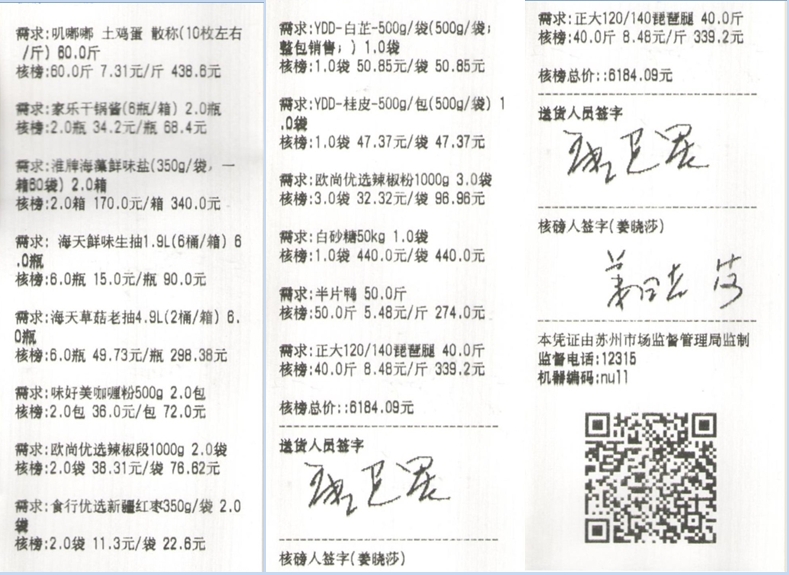 需求:叽嘟嘟 土鸡蛋 散称(10枚左右
/斤) 60.0斤
核榜:60.0斤 7.31元/斤 438.6元
需求:家乐干锅酱(6瓶/箱) 2.0瓶
核榜:2.0瓶 34.2元/瓶 68.4元
需求:淮牌海藻鲜味盐(350g/袋，一
箱60袋) 2.0箱
核榜:2.0箱 170.0元/箱 340.0元
需求: 海天鲜味生抽1.9L(6桶/箱) 6
.0瓶
核榜:6.0瓶 15.0元/瓶 90.0元
需求:海天草菇老抽4.9L(2桶/箱) 6.
0瓶
核榜:6.0瓶 49.73元/瓶 298.38元
需求:味好美咖喱粉500g 2.0包
核榜:2.0包 36.0元/包 72.0元
需求:欧尚优选辣椒段1000g 2.0袋
核榜:2.0袋 38.31元/袋 76.62元
需求:食行优选新疆红枣350g/袋 2.0
袋
核榜:2.0袋 11.3元/袋 22.6元
需求:YDD-白芷-500g/袋(500g/袋;
整包销售;) 1.0袋
核榜:1.0袋 50.85元/袋 50.85元
需求:YDD-桂皮-500g/包(500g/袋) 1
.0袋
核榜:1.0袋 47.37元/袋 47.37元
需求:欧尚优选辣椒粉1000g 3.0袋
核榜:3.0袋 32.32元/袋 96.96元
需求:白砂糖50kg 1.0袋
核榜:1.0袋 440.0元/袋 440.0元
需求:半片鸭 50.0斤
核榜:50.0斤 5.48元/斤 274.0元
需求:正大120/140琵琶腿 40.0斤
核榜:40.0斤 8.48元/斤 339.2元
核榜总价::6184.09元
送货人员签字
核榜人签字(姜晓莎)
需求:正大120/140琵琶腿 40.0斤
核榜:40.0斤 8.48元/斤 339.2元
核榜总价::6184.09元
送货人员签字
核磅人签字(姜晓莎)
姜晓莎
本凭证由苏州市场监督管理局监制
监督电话:12315
机器编码:null